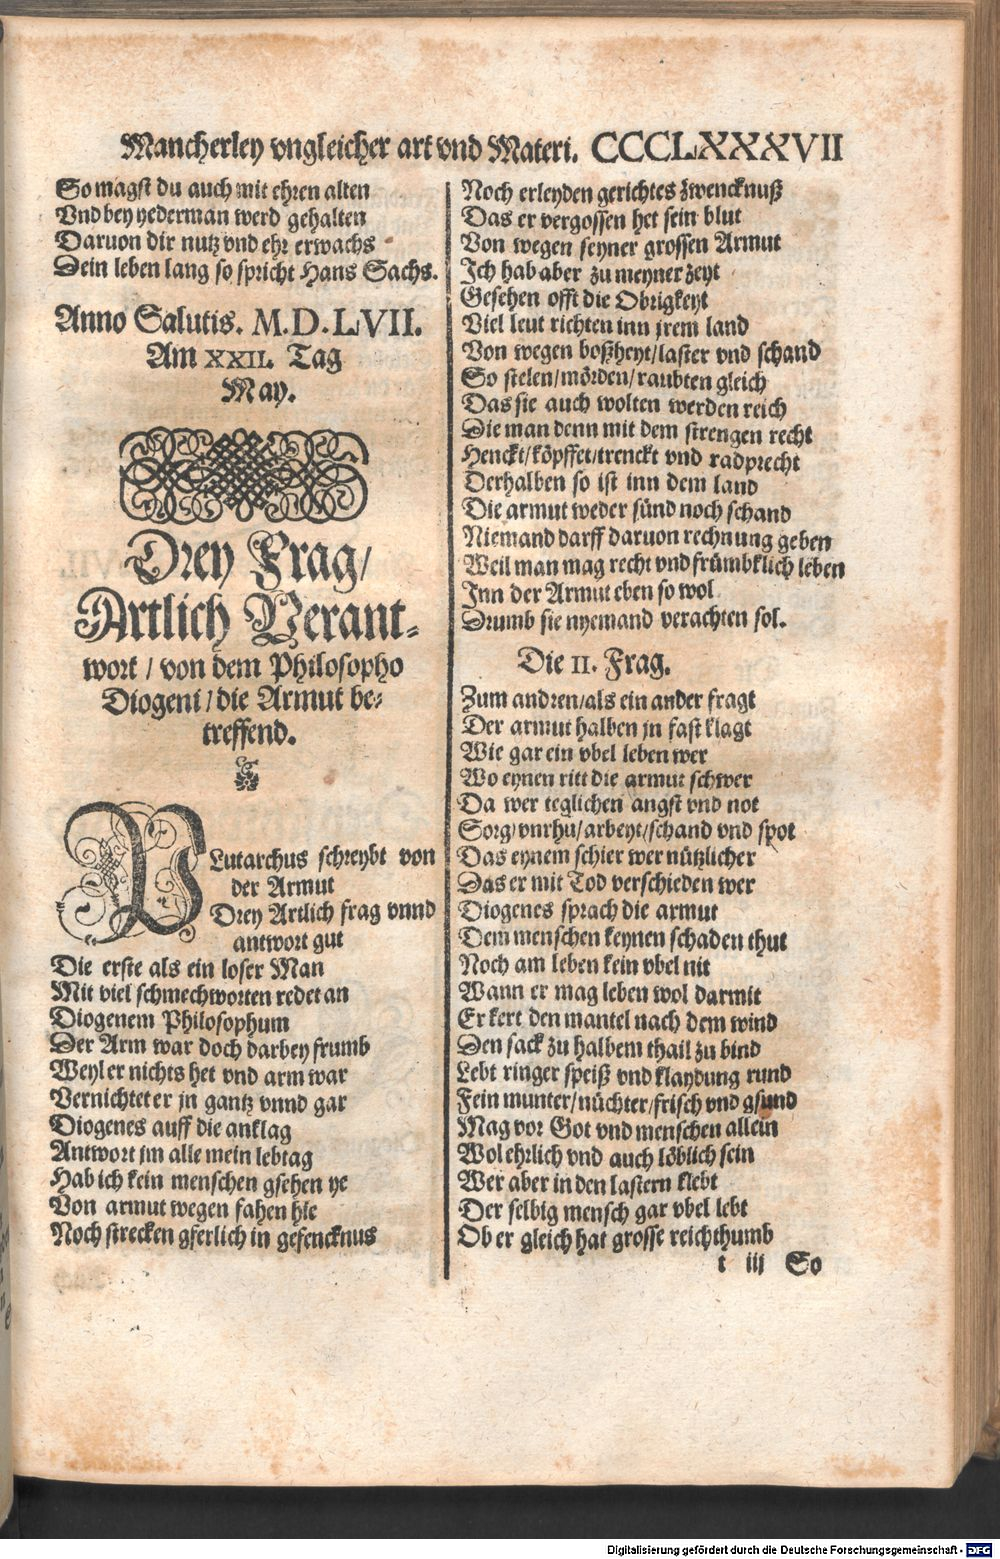 Mancherley vngleicher art vnd Materi. CCCLXXXVII
So magst du auch mit ehren alten
Vnd bey yederman werd gehalten
Daruon dir nutz vnd ehr erwachs
Dein leben lang so spricht Hans Sachs.
Anno Salutis. M.D.LVII.
Am XXII. Tag
May.
Drey Frag/
Artlich Verant-
wort / von dem Philosopho
Diogeni / die Armut be-
treffend.
PLutarchus schreybt von
der Armut
Drey Artlich frag vnnd
antwort gut
Die erste als ein loser Man
Mit viel schmechworten redet an
Diogenem Philosophum
Der Arm war doch darbey frumb
Weyl er nichts het vnd arm war
Vernichtet er jn gantz vnnd gar
Diogenes auff die anklag
Antwort jm alle mein lebtag
Hab ich kein menschen gsehen ye
Von armut wegen fahen hie
Noch strecken gferlich in gefencknus
Noch erleyden gerichtes zwencknuß
Das er vergossen het sein blut
Von wegen seyner grossen Armut
Ich hab aber zu meyner zeyt
Gesehen offt die Obrigkeyt
Viel leut richten inn jrem land
Von wegen boßheyt/laster vnd schand
So stelen/mörden/raubten gleich
Das sie auch wolten werden reich
Die man denn mit dem strengen recht
Henckt/köpffet/trenckt vnd radprecht
Derhalben so ist inn dem land
Die armut weder sünd noch schand
Niemand darff daruon rechnung geben
Weil man mag recht vnd frümbklich leben
Inn der Armut eben so wol
Drumb sie nyemand verachten sol.
Die II. Frag.
Zum andren/als ein ander fragt
Der armut halben jn fast klagt
Wie gar ein vbel leben wer
Wo eynen ritt die armut schwer
Da wer teglichen angst vnd not
Sorg/vnrhu/arbeyt/schand vnd spot
Das eynem schier wer nützlicher
Das er mit Tod verschieden wer
Diogenes sprach die armut
Dem menschen keynen schaden thut
Noch am leben kein vbel nit
Wann er mag leben wol darmit
Er kert den mantel nach dem wind
Den sack zu halbem thail zu bind
Lebt ringer speiß vnd klaydung rund
Fein munter/nüchter/frisch vnd gsund
Mag vor Got vnd menschen allein
Wol ehrlich vnd auch löblich sein
Wer aber in den lastern klebt
Der selbig mensch gar vbel lebt
Ob er gleich hat grosse reichthumb
t iij So
Digitalisierung gefördert durch die Deutsche Forschungsgemeinschaft - DFG